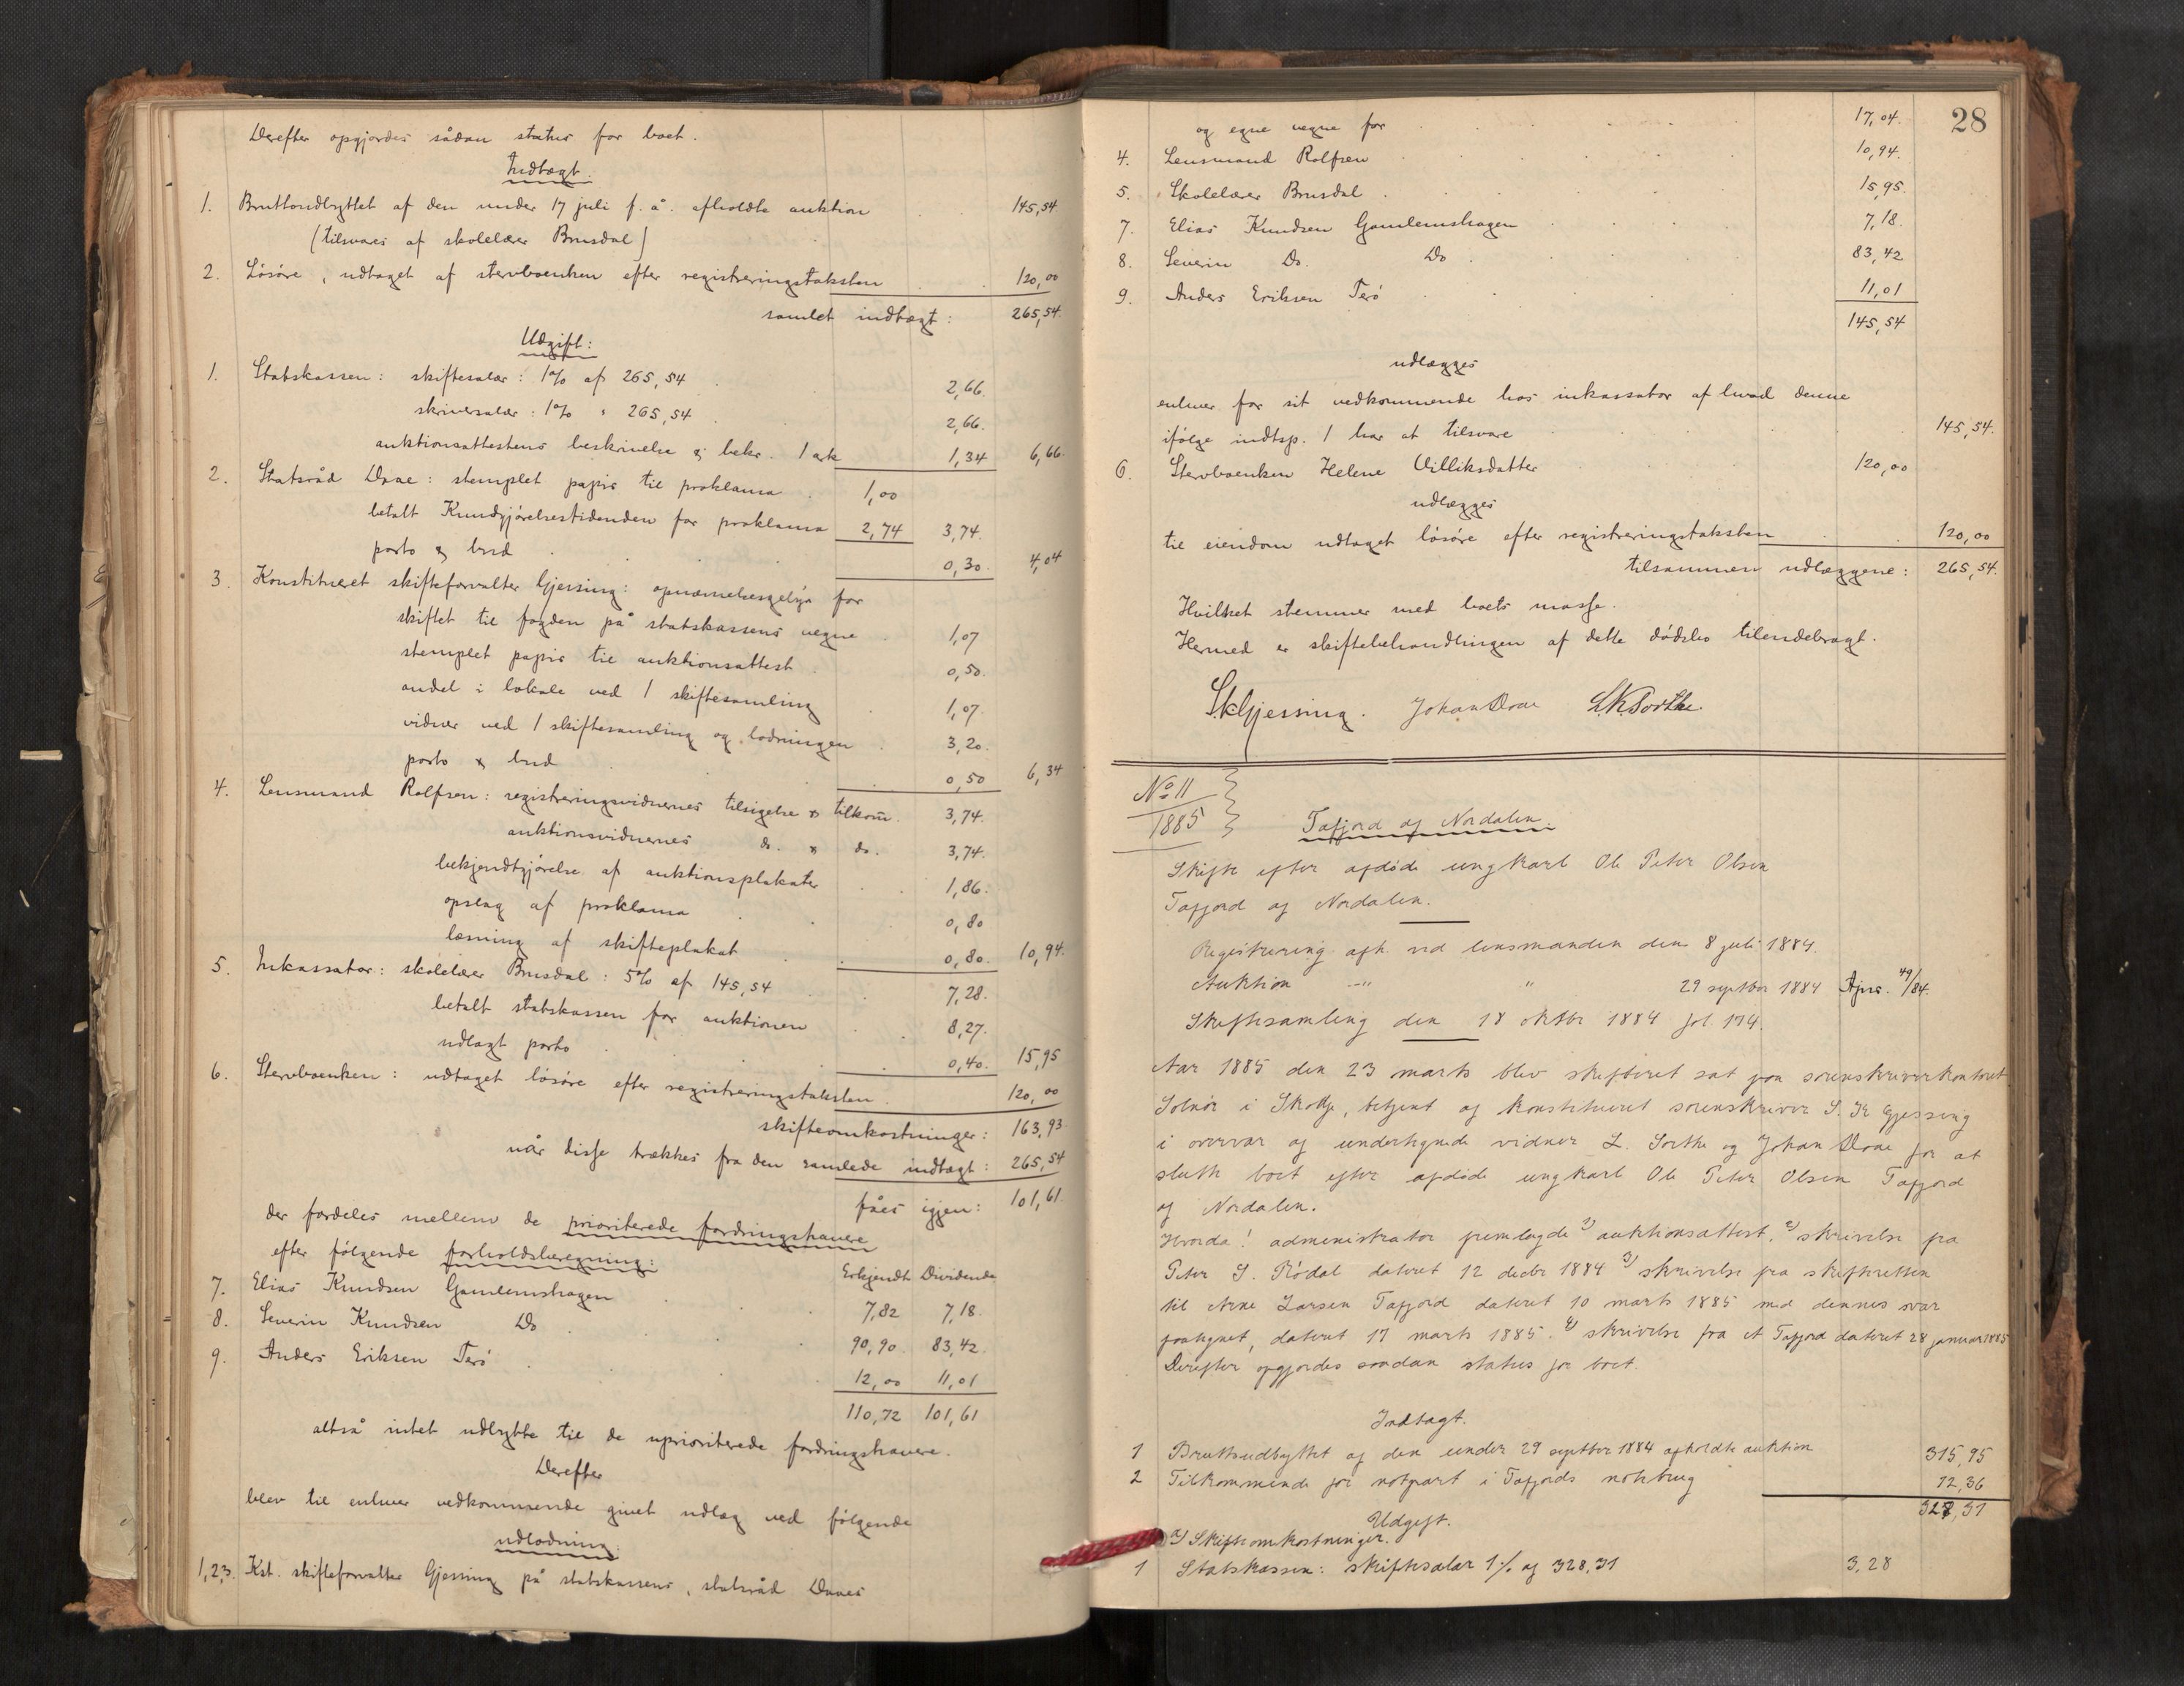 Derefter opgjordes sådan status for boet.
Indtægt.
1. Bruttoudbyttet af den under 17 juli f. å. afholdte auktion 145,54
(tilsvares af skolelærer Brusdal)
2. Lösöre, udtaget af stervboenken efter registreringstaksten 120,00
samlet indtægt: 265,54
Udgift:
1. Statskassen: skiftesalær: 1% af 265,54 2,66.
skriversalær: 1% " 265,54 2,66.
auktionsattestens beskrivelse & bekr. 1 ark 1,34 6,66.
2. Statsråd Daae: stemplet papir til proklama 1,00
betalt Kundgjörelsestidenden for proklama 2,74 3,74.
porto & bud 0,30. 4,04
3. Konstitueret skifteforvalter Gjessing: opnævnelsesgebyr for
skiftet til fogden på statskassens vegne 1,07
stemplet papir til auktionsattest 0,50.
andel i lokale ved 1 skiftesamling 1,07.
vidner ved 1 skiftesamling og lodningen 3,20.
porto & bud 0,50 6,34
4. Lensmand Rolfsen: registreringsvidnernes tilsigelse & tilkom̄. 3,74.
auktionsvidnernes do. & do. 3,74.
bekjendtgjörelse af auktionsplakater 1,86.
opslag af proklama 0,80
læsning af skifteplakat 0,80. 10,94.
5. Inkassator: skolelærer Brusdal: 5% af 145,54 7,28.
betalt statskassen for auktionen 8,27.
udlagt porto 0,40. 15,95
6. Stervboenken: udtaget lösöre efter registreringstaksten. 120,00
skifteomkostninger: 163,93
når disse trækkes fra den samlede indtægt: 265,54
fåes igjen: 101,61.
der fordeles mellem de prioriterede fordringshavere
efter fölgende forholdsberegning:
Erkjendt Dividende
7. Elias Knudsen Gamlemshagen 7,82 7,18.
8. Severin Knudsen Do 90,90. 83,42.
9. Anders Eriksen Terö 12,00 11,01
110,72 101,61
altså intet udbytte til de uprioriterede fordringshavere.
Derefter
blev til enhver vedkommende givet udlæg ved fölgende
udlodning:
1,2,3. Kst. skifteforvalter Gjessing på statskassens, statsråd Daaes
28
og egne vegne for 17,04.
4. Lensmand Rolfsen 10,94.
5. Skolelærer Brusdal 15,95.
7. Elias Knudsen Gamlemshagen 7,18.
8. Severin Do. Do 83,42
9. Anders Eriksen Terö 11,01
145,54
udlægges
enhver for sit vedkommende hos inkassator af hvad denne
ifölge indtsp. 1 har at tilsvare 145,54.
6. Stervboenken Helene Villiksdatter 120,00
udlægges
til eiendom udtaget lösöre efter registreringstaksten 120,00
tilsammen udlæggene: 265,54.
Hvilket stemmer med boets masse.
Hermed er skiftebehandlingen af dette dödsbo tilendebragt.
S.K. Gjessing. Johan Daae
No 11
1885
Tafjord af Nordalen.
Skifte efter afdøde ungkarl Ole Peter Olsen
Tafjord af Nordalen.
Registrering afh. ved lensmanden den 8 juli 1884.
Auktion —"— " 29 septbr 1884 49/84.
Skiftesamling den 18 oktbr 1884 fol. 174.
Aar 1885 den 23 marts blev skifteret sat paa sorenskriverkontoret
Solnör i Skodje, betjent af konstitueret sorenskriver S. K. Gjessing
i overvær af undertegnede vidner L. Sorthe og Johan Daae for at
slutte boet efter afdøde ungkarl Ole Peter Olsen Tafjord
af Nordalen.
Hvorda! administrator fremlagde 1) auktionsattest, 2) skrivelse fra
Peter S. Rödal dateret 12 decbr 1884 3) skrivelse fra skifteretten
til Arne Larsen Tafjord dateret 10 marts 1885 med dennes svar
paategnet, dateret 17 marts 1885. 4) skrivelse fra A Tafjord dateret 28 januar 1885
Derefter opgjordes saadan status for boet.
Indtægt.
1 Bruttoudbyttet af den under 29 septbr 1884 afholdte auktion 315,95
2 Tilkommende for notpart i Tafjords notebrug 12,36
328,31
Udgift.
a) Skifteomkostninger.
1 Statskassen: skiftesalær 1% af 328,31 3,28